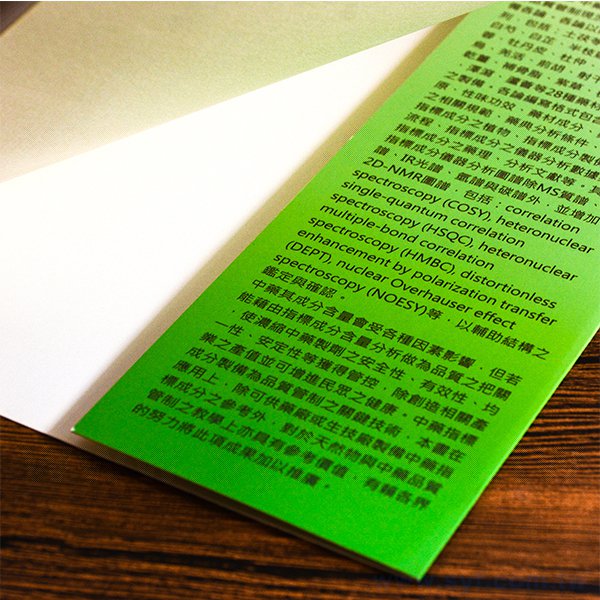 別,包括:土茯苓
白芍、白芷、半枝
、牡丹皮、杜仲
、羌活、前胡、射干
乾薑、補骨脂、紫草
、澤瀉、蘆薈等28種藥材
之製備,各論編寫格式包含
原、性味功效、藥材成分
之相關規範、藥典分析條件
流程,指標成分之植物、指標成分製備
指標成分之藥理、分析文獻等,其
指標成分儀器分析圖譜除MS質譜
譜、IR光譜、氫譜與碳譜外,並增加
2D-NMR圖譜,包括:correlation
spectroscopy (COSY), heteronuclear
single-quantum correlation
spectroscopy (HSQC), heteronuclear
multiple-bond correlation
spectroscopy (HMBC), distortionless
enhancement by polarization transfer
(DEPT), nuclear Overhauser effect
spectroscopy (NOESY)等,以輔助結構之
鑑定與確認。
中藥其成分含量會受各種因素影響,但若
能藉由指標成分含量分析做為品質之把關
,使濃縮中藥製劑之安全性、有效性、均
一性、安定性等獲得管控,除創造相關產
業之產值並可促進民眾之健康。中藥指標
成分製備為品質管制之關鍵技術,本書在
應用上,除可供藥廠或生技廠製備中藥指
標成分之參考外,對於天然物與中藥品質
管制之教學上亦具有參考價值,有賴各界
的努力將此項成果加以推廣。